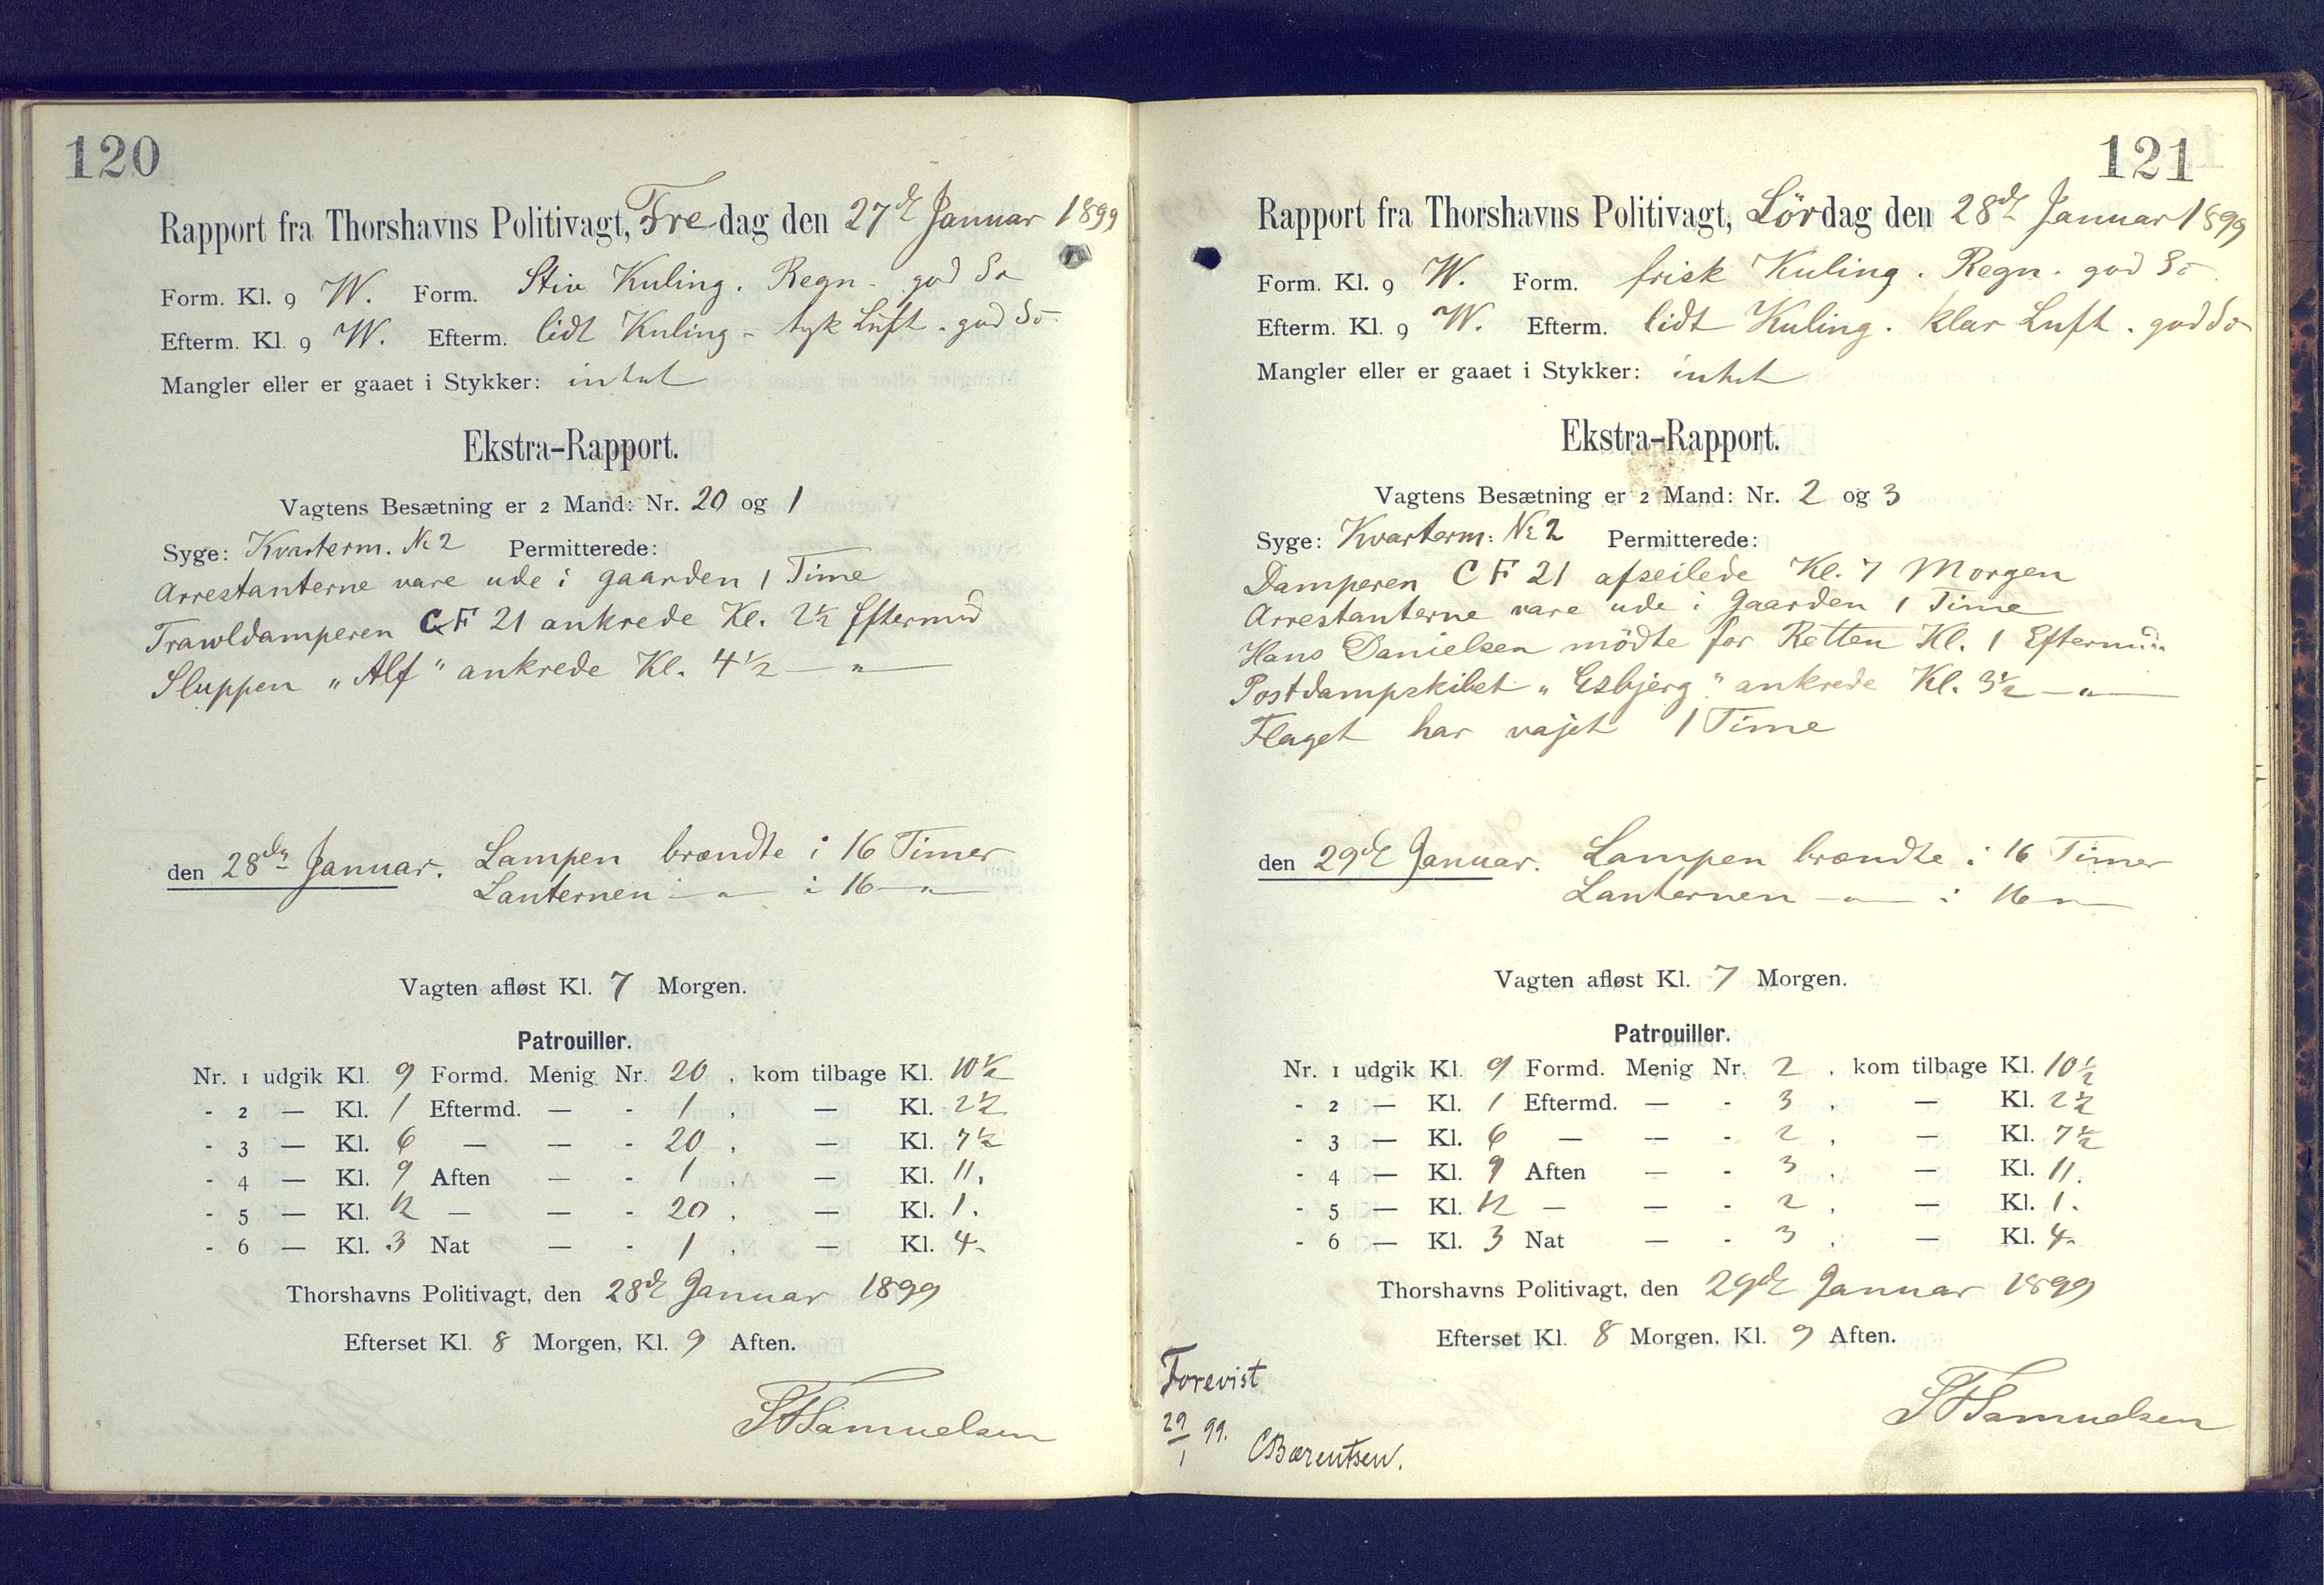 120
Rapport fra Thorshavns Politivagt, Fredag den 27de Januar 1899
Form. Kl. 9 W. Form. Stiv Kuling. Regn. god Sö
Efterm. Kl. 9 W. Efterm. lidt Kuling - tyk Luft. god Sö
Mangler eller er gaaet i Stykker: intet
Ekstra-Rapport.
Vagtens Besætning er 2 Mand: Nr. 20 og 1
Syge: Kvarterm. No 2 Permitterede:
Arrestanterne vare ude i gaarden 1 Time
Trawldamperen CF 21 ankrede Kl. 2½ Eftermd
Sluppen „Alf" ankrede Kl. 4½ — " —
den 28de Januar. Lampen brændte i 16 Timer
Lanternen — " — i 16 — " —
Vagten afløst Kl. 7 Morgen.
Patrouiller.
Nr. 1 udgik Kl. 9 Formd. Menig Nr. 20, kom tilbage Kl. 10½
- 2 — Kl. 1 Eftermd. — - 1, — Kl. 2½
- 3 — Kl. 6 — — - 20, — Kl. 7½
- 4 — Kl. 9 Aften — - 1, — Kl. 11.
- 5 — Kl. 12 — — - 20, — Kl. 1.
- 6 — Kl. 3 Nat — - 1, — Kl. 4.
Thorshavns Politivagt, den 28de Januar 1899
Efterset Kl. 8 Morgen, Kl. 9 Aften.
SFSamuelsen
121
Rapport fra Thorshavns Politivagt, Lördag den 28de Januar 1899
Form. Kl. 9 W. Form. frisk Kuling. Regn. god Sö
Efterm. Kl. 9 W. Efterm. lidt Kuling. klar Luft. god Sö
Mangler eller er gaaet i Stykker: intet
Ekstra-Rapport.
Vagtens Besætning er 2 Mand: Nr. 2 og 3
Syge: Kvarterm: No 2 Permitterede:
Damperen CF 21 afseilede Kl. 7 Morgen
Arrestanterne vare ude i gaarden 1 Time
Hans Danielsen mödte for Retten Kl. 1 Eftermd.
Postdampskibet „Esbjerg" ankrede Kl. 3½ — " —
Flaget har vajet 1 Time
den 29de Januar. Lampen brændte i 16 Timer
Lanternen — " — i 16 — " —
Vagten afløst Kl. 7 Morgen.
Patrouiller.
Nr. 1 udgik Kl. 9 Formd. Menig Nr. 2, kom tilbage Kl. 10½
- 2 — Kl. 1 Eftermd. — - 3, — Kl. 2½
- 3 — Kl. 6 — — - 2, — Kl. 7½
- 4 — Kl. 9 Aften — - 3, — Kl. 11.
- 5 — Kl. 12 — — - 2, — Kl. 1.
- 6 — Kl. 3 Nat — - 3, — Kl. 4.
Thorshavns Politivagt, den 29de Januar 1899
Efterset Kl. 8 Morgen, Kl. 9 Aften.
SFSamuelsen
Forevist
29/1 99. CBærentsen.